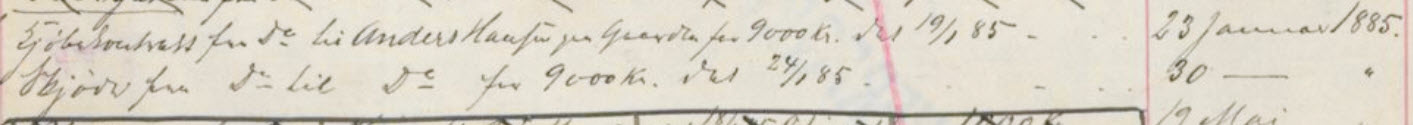 Kjöbekontrakt fra Do til Anders Hansen paa Gaarden for 9000 Kr. dat 19/1 85 - 23 Januar 1885.
Skjöde fra Do til Do for 9000 Kr. dat 24/1 85. - 30 — "
19 Mai